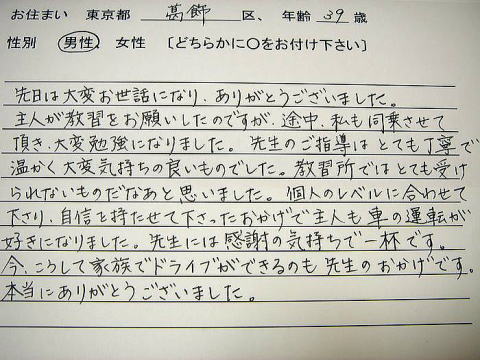 お住まい 東京都 葛飾 区、 年齢 39 歳
性別 男性 女性 〔どちらかに〇をお付け下さい〕
先日は大変お世話になり、ありがとうございました。
主人が教習をお願いしたのですが、途中、私も同乗させて
頂き、大変勉強になりました。先生のご指導はとても丁寧で
温かく大変気持ちの良いものでした。教習所ではとても受け
られないものだなあと思いました。個人のレベルに合わせて
下さり、自信を持たせて下さったおかげで主人も車の運転が
好きになりました。先生には感謝の気持ちで一杯です。
今、こうして家族でドライブができるのも先生のおかげです。
本当にありがとうございました。